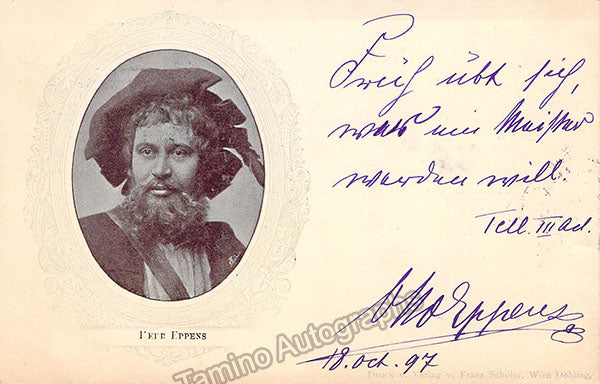 Früh übt sich,
was ein Meister
werden will.
Tell. III Act.
Otto Eppens
18. Oct. 97
HERR EPPENS
Druck u. Verlag v. Franz Schöler, Wien Döbling.
Tamino Autographs